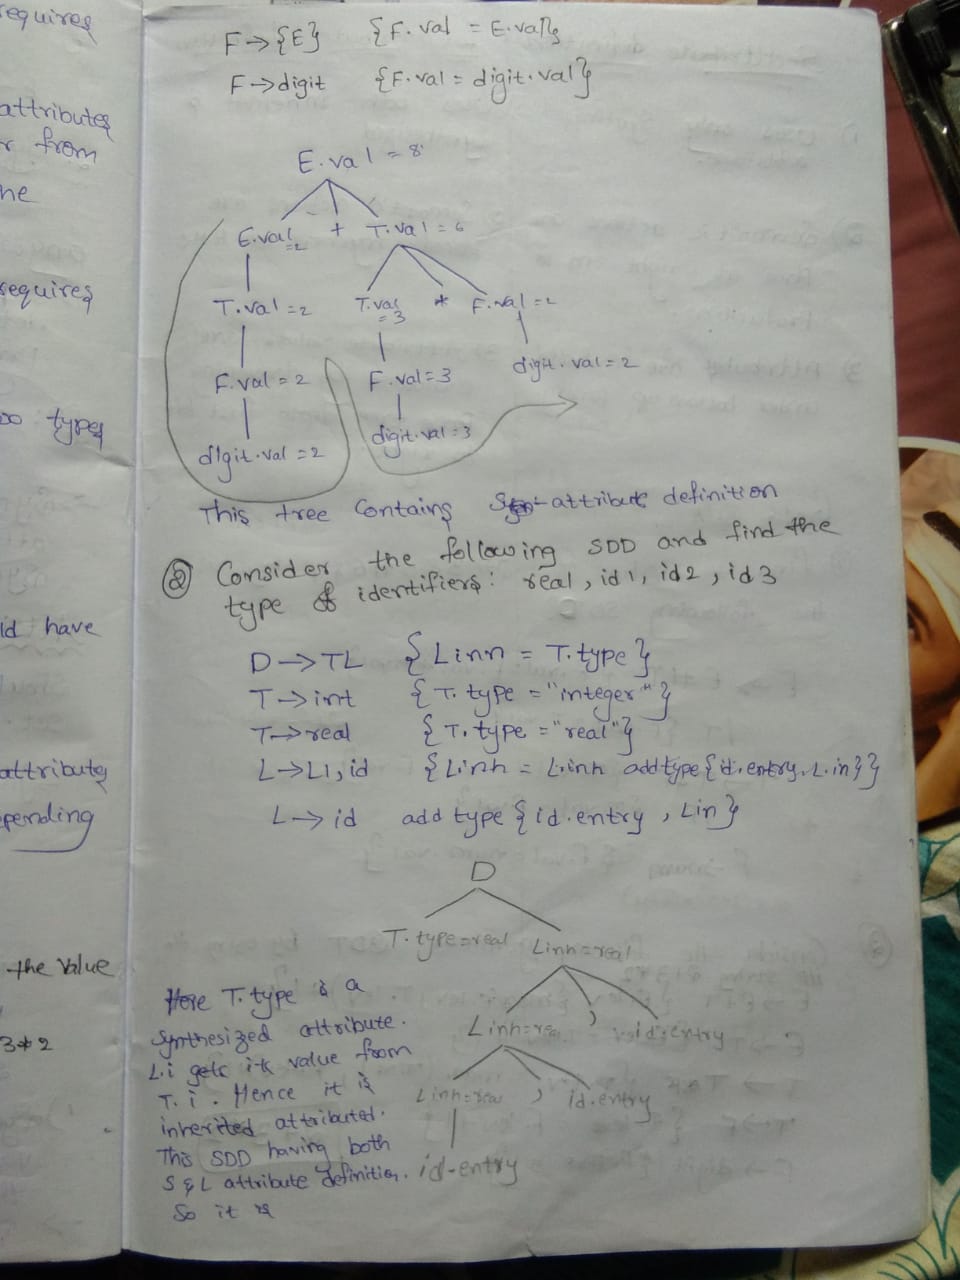 requires
attributes
r from
he
requires
types
ld have
attributes
epending
the value
3*2
F→{E} {F.val = E.val}
F→digit {F.val = digit.val}
E.val = 8
E.val =2 + T.val = 6
T.val =2 T.val =3 * F.val =2
F.val = 2 F.val=3 digit.val = 2
digit.val = 2 digit.val =3
This tree contains S-attribute definition
② Consider the following SDD and find the
type of identifiers: real, id1, id2, id3
D→TL {Linn = T.type}
T→int {T.type ="integer"}
T→real {T.type ="real"}
L→L1,id {Linh = L.inh addtype{id.entry, L.in}}
L→id add type {id.entry, Lin}
D
T.type=real Linh=real
Linh=rea , id.entry
Linh=real , id.entry
id-entry
Here T.type is a
synthesized attribute.
L.i gets its value from
T.i. Hence it is
inherited attributed.
This SDD having both
S & L attribute definition.
So it is